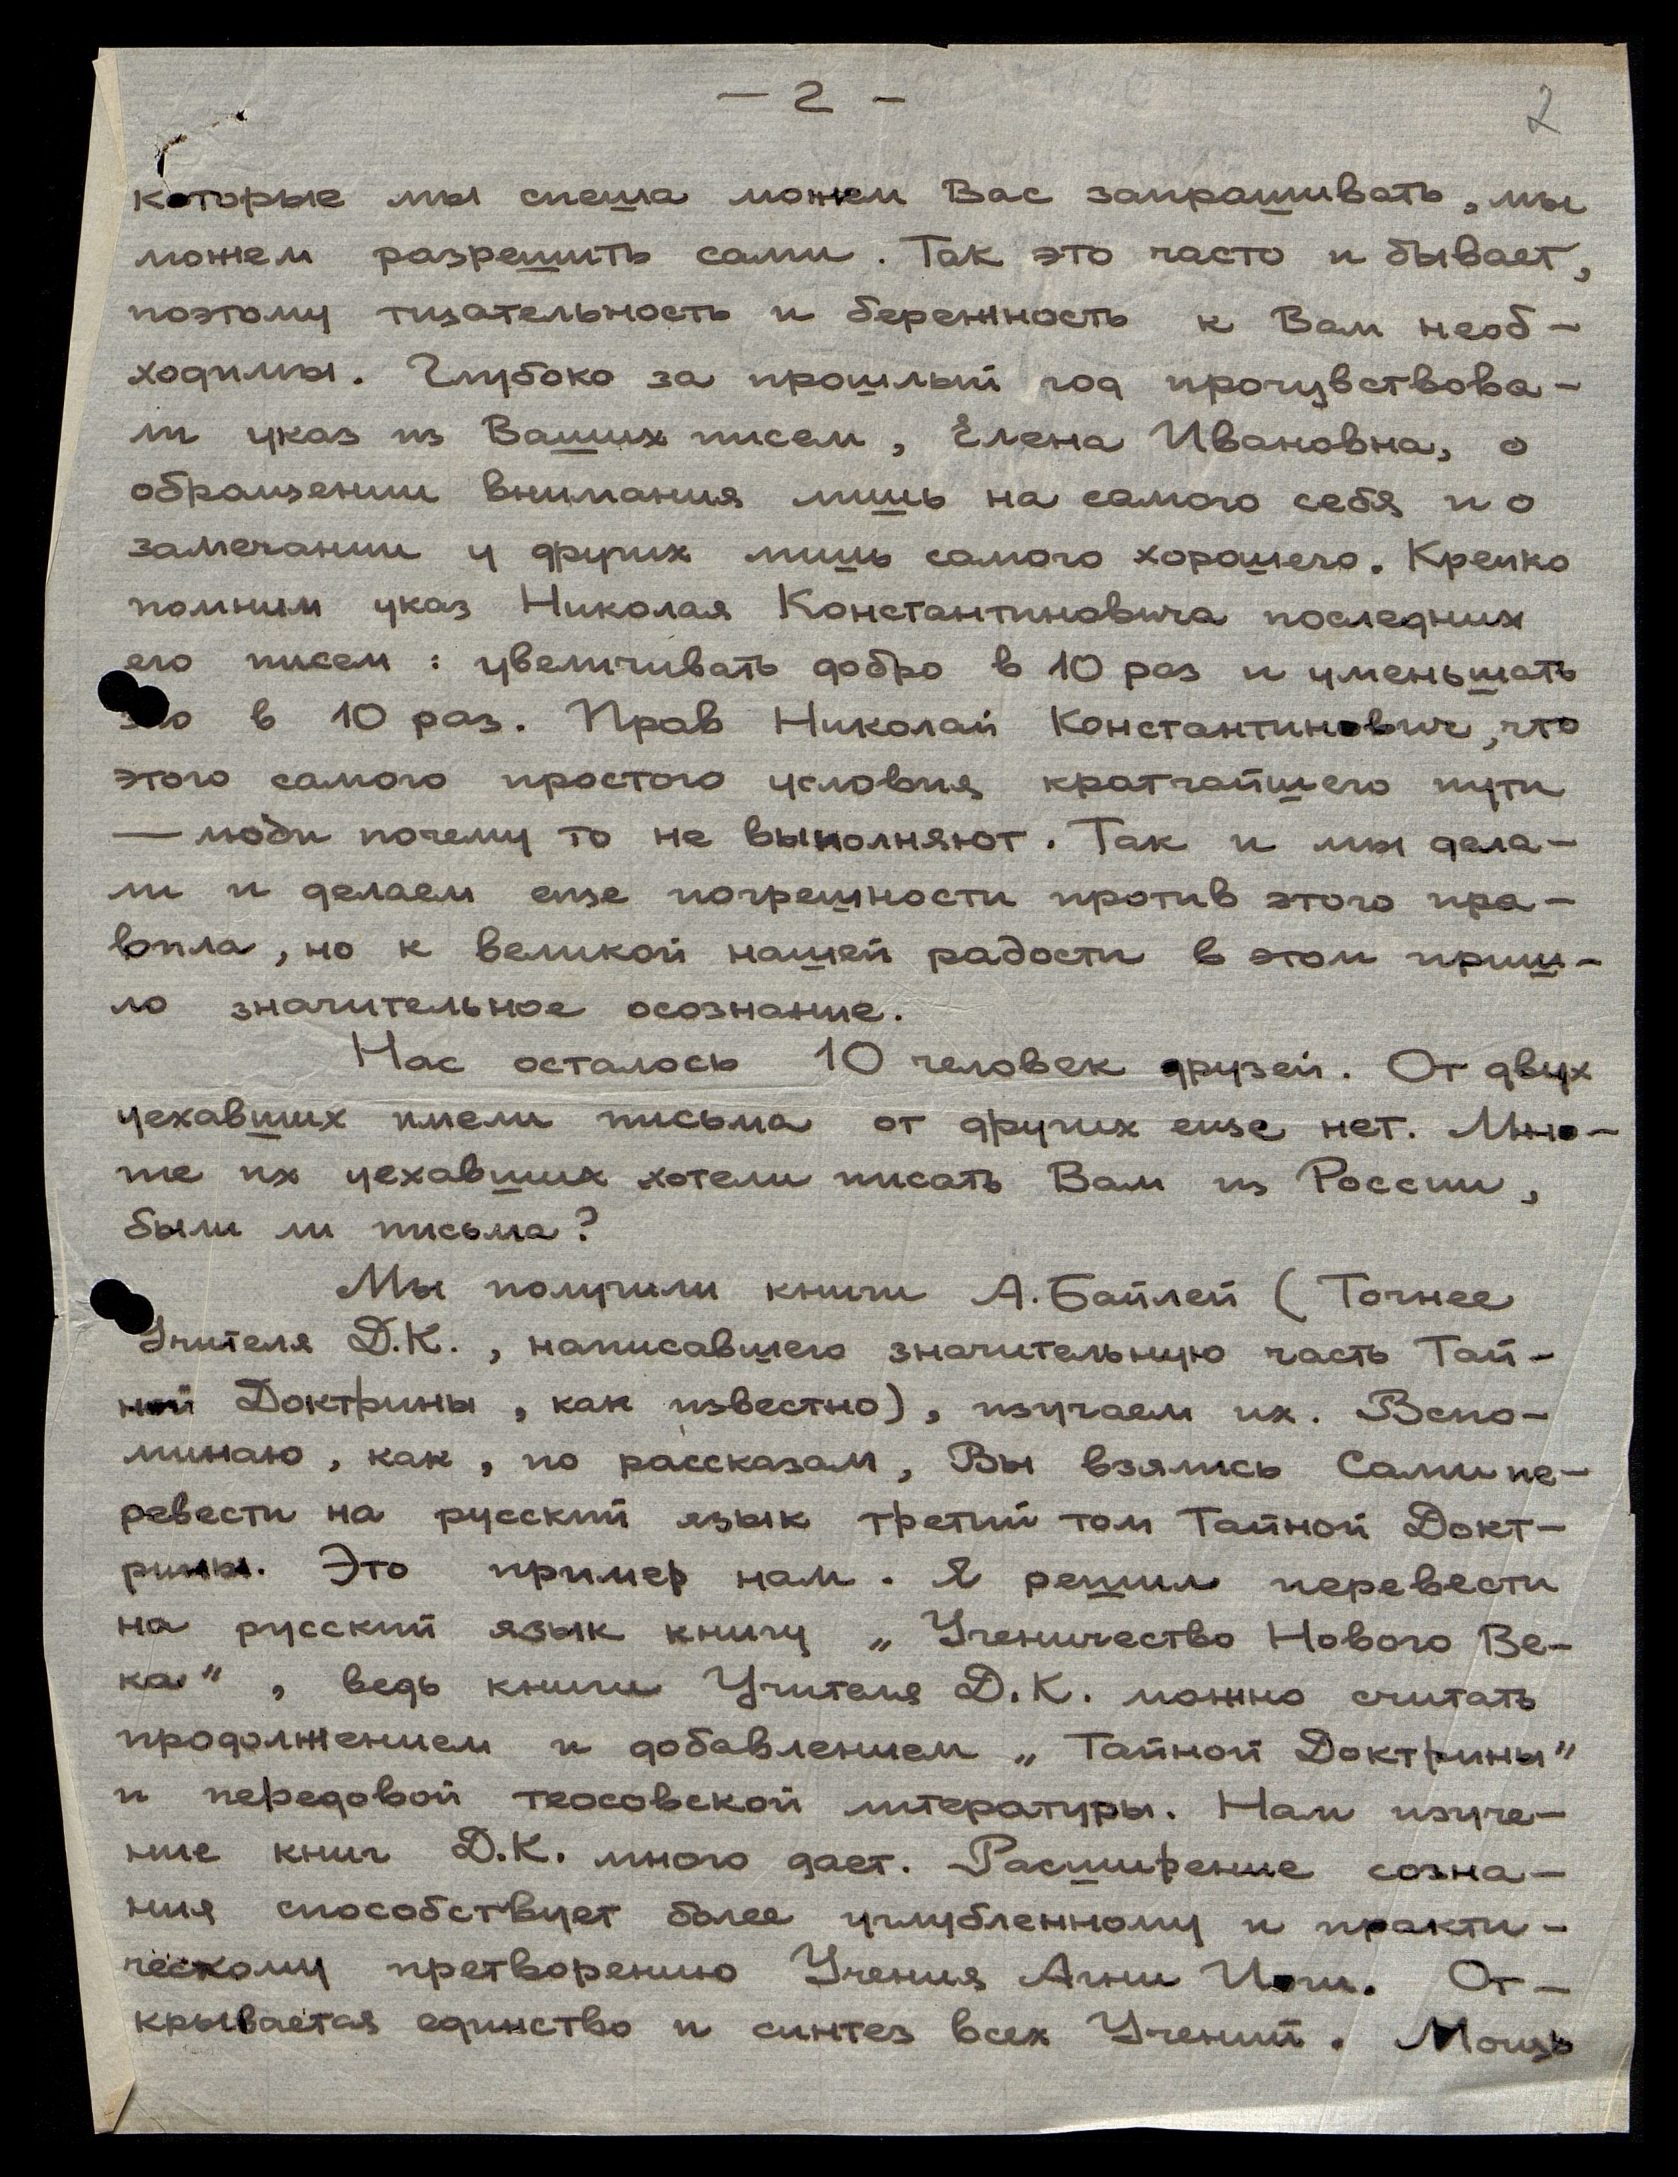 — 2 —
2
которые мы спеша можем Вас запрашивать, мы
можем разрешить сами. Так это часто и бывает,
поэтому тщательность и бережность к Вам необ-
ходимы. Глубоко за прошлый год прочувствова-
ли указ из Ваших писем, Елена Ивановна, о
обращении внимания лишь на самого себя и о
замечании у других лишь самого хорошего. Крепко
помним указ Николая Константиновича последних
его писем: увеличивать добро в 10 раз и уменьшать
зло в 10 раз. Прав Николай Константинович, что
этого самого простого условия кратчайшего пути
— люди почему то не выполняют. Так и мы дела-
ли и делаем еще погрешности против этого пра-
вила, но к великой нашей радости в этом приш-
ло значительное осознание.
Нас осталось 10 человек друзей. От двух
уехавших имели письма от других еще нет. Мно-
гие их уехавших хотели писать Вам из России,
были ли письма?
Мы получили книги А. Байлей (Точнее
Учителя Д.К., написавшего значительную часть Тай-
ной Доктрины, как известно), изучаем их. Вспо-
минаю, как, по рассказам, Вы взялись Сами пе-
ревести на русский язык третий том Тайной Докт-
рины. Это пример нам. Я решил перевести
на русский язык книгу „Ученичество Нового Ве-
ка", ведь книги Учителя Д.К. можно считать
продолжением и добавлением „Тайной Доктрины"
и передовой теосовской литературы. Нам изуче-
ние книг Д.К. много дает. Расширение созна-
ния способствует более углубленному и практи-
ческому претворению Учения Агни Йоги. От-
крывается единство и синтез всех Учений. Мощь